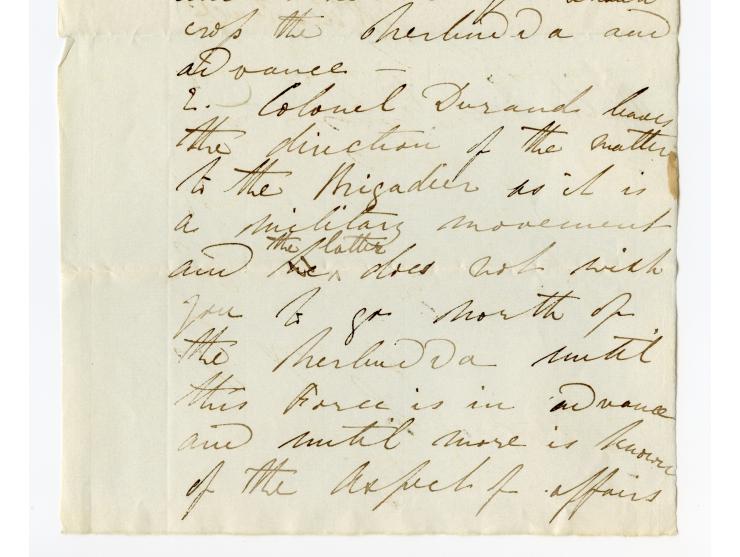 cross the Nerbudda and
advance —
2. Colonel Durand leaves
the direction of the matter
to the Brigadier as it is
a military movement
the latter
and he ^ does not wish
you to go north of
the Nerbudda until
this Force is in advance
and until more is known
of the aspect of affairs